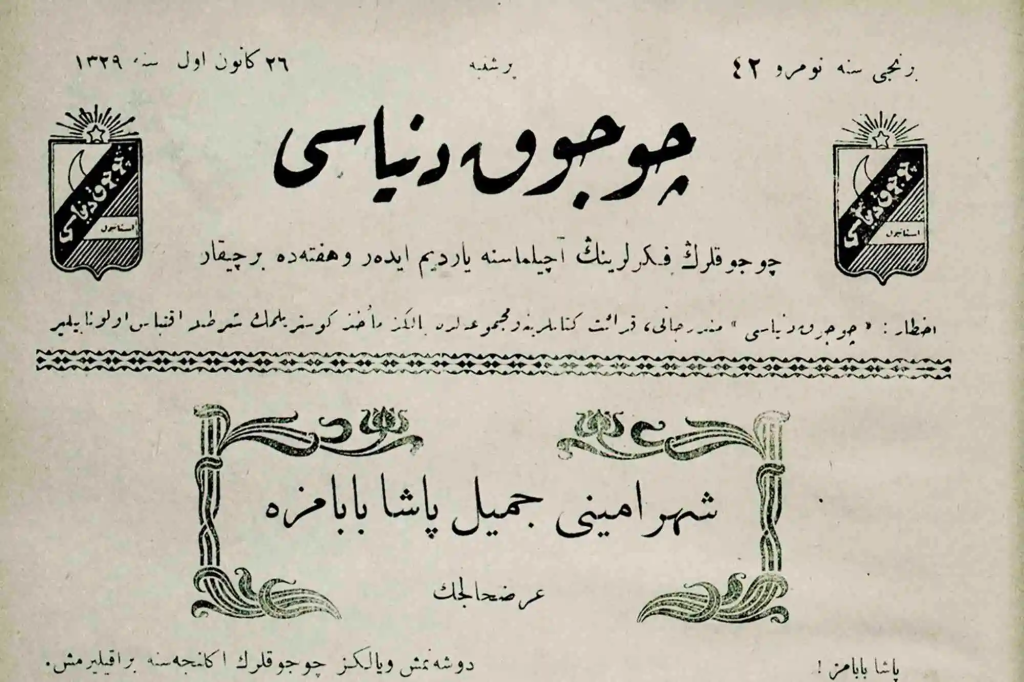 برنجی سنه نومرو ٤٢
پرشنبه
٢٦ كانون اول سنه ١٣٢٩
چوجوق دنیاسی
چوجوق دنیاسی
استانبول
چوجوق دنیاسی
استانبول
چوجوقلرڭ فكرلرینڭ آچیلماسنه یاردیم ایدەر و هفته‌ده بر چیقار
اخطار : « چوجوق دنیاسی » مندرجاتی، قرائت كتابلرینه و مجموعه‌لره یالكز مأخذ كوستریلمك شرطیله اقتباس اولونابیلیر
شهر امینی جمیل پاشا بابامزه
عرضحالجك
پاشا بابامز !
دوشه‌نمش و یالكز چوجوقلرك اكلنجه‌سنه براقیلیرمش.